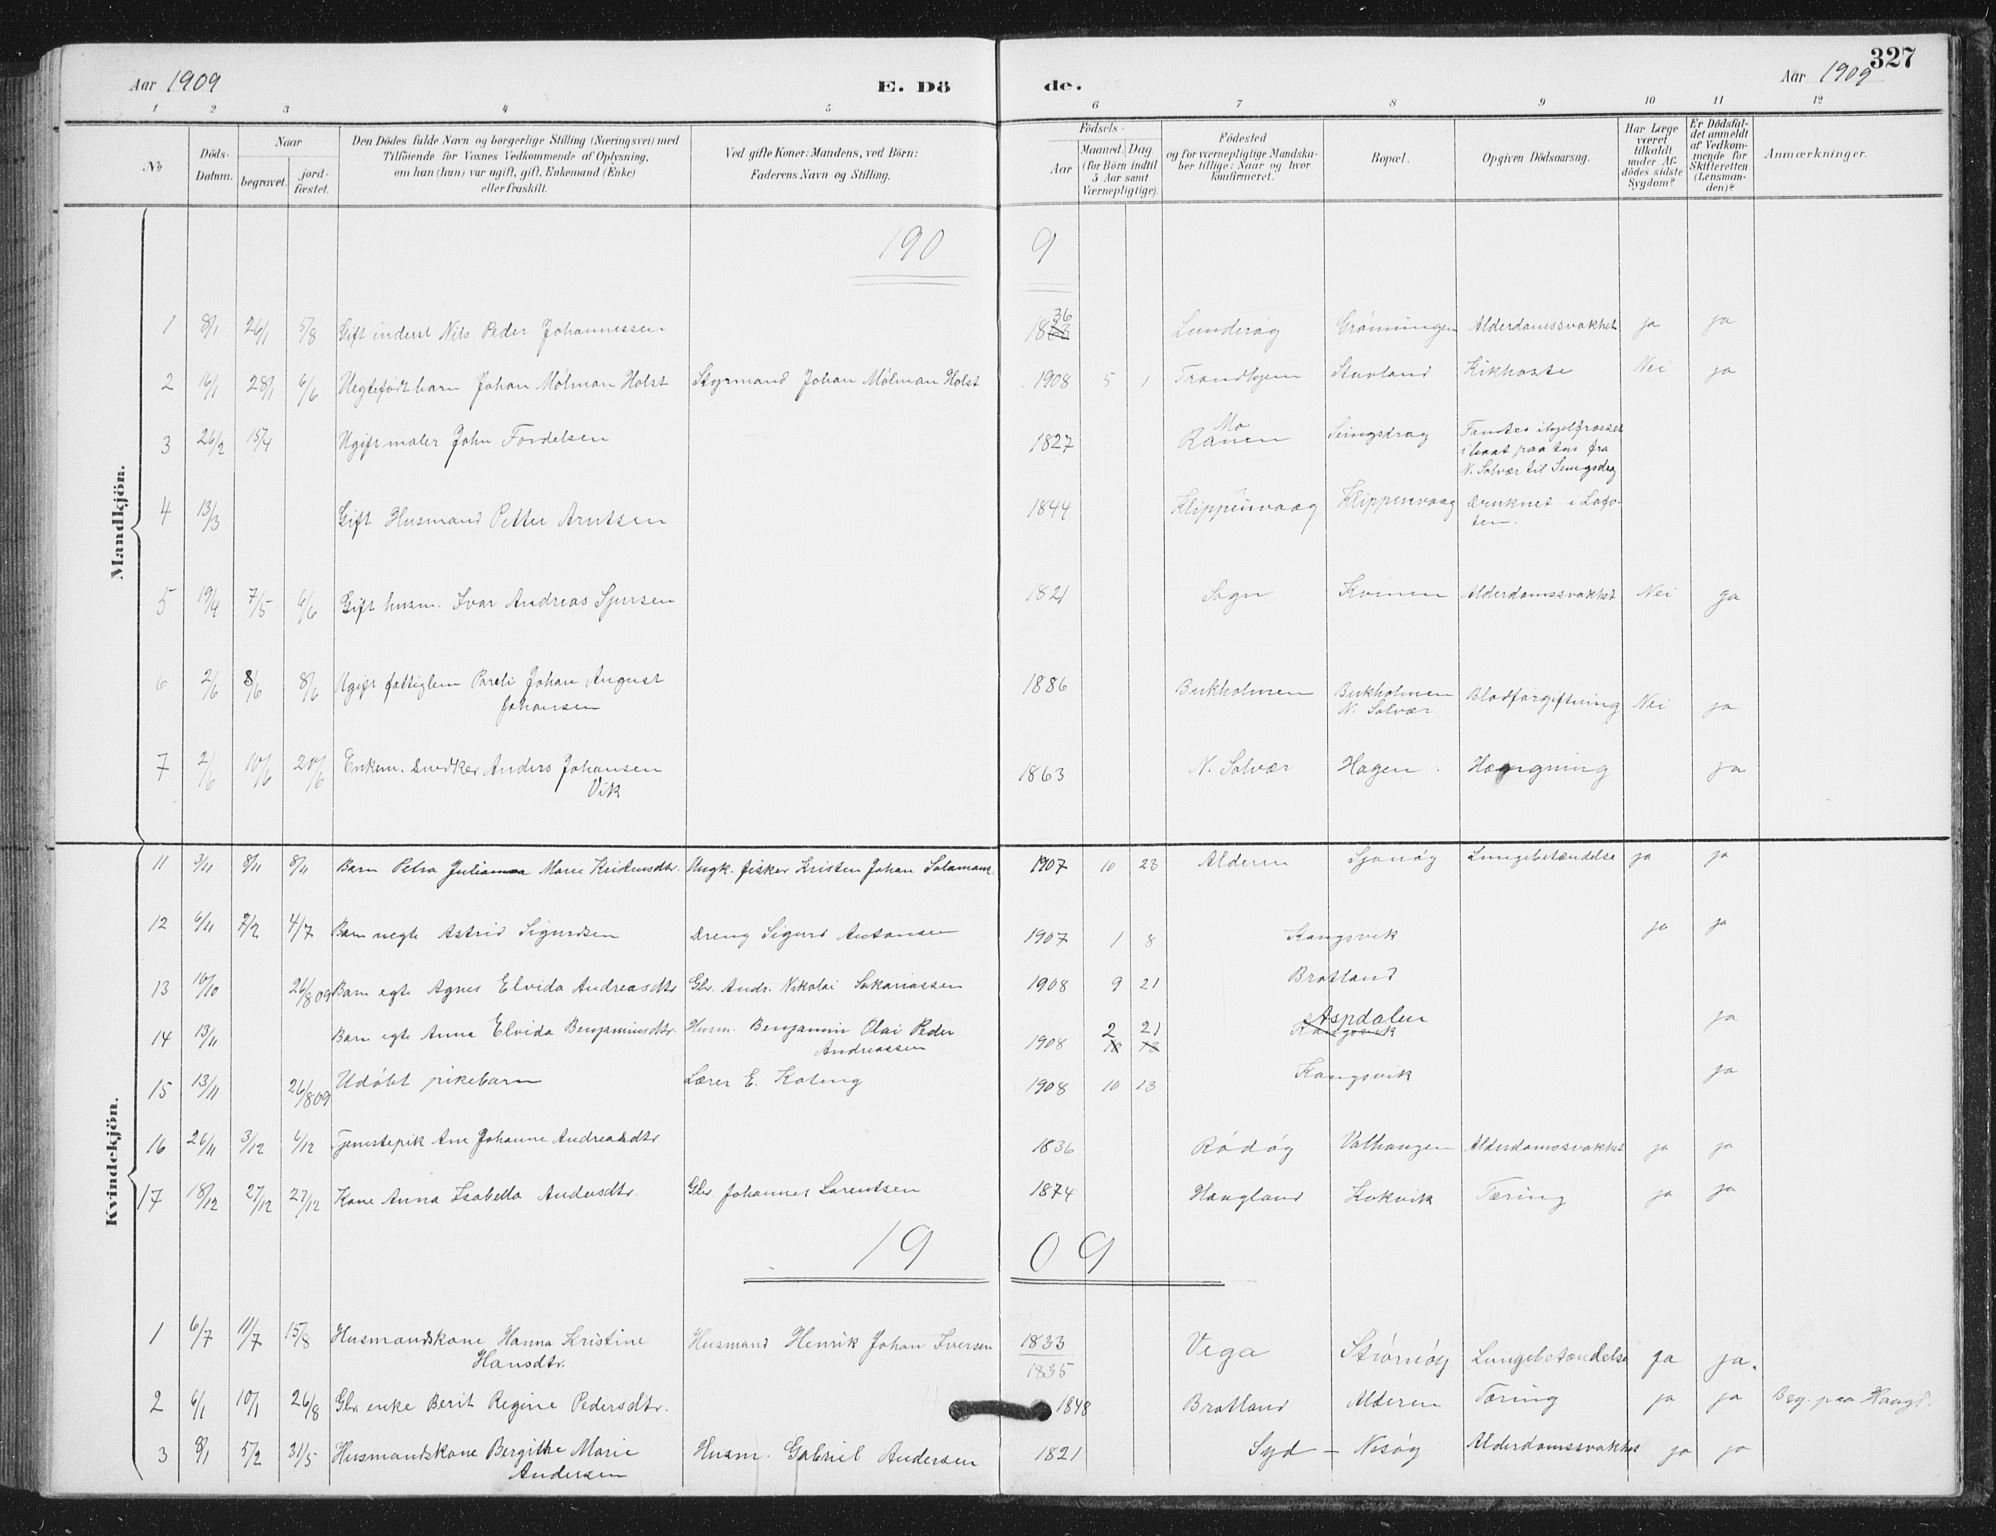 Aar 1909 E. Dö de. Aar 1909 327
1 2 3 4 5 6 7 8 9 10 11 12
No Döds-Datum. Naar begravet. jordfæstet. Den Dödes fulde Navn og borgerlige Stilling (Næringsvei) med Tilföiende for Voxnes Vedkommende af Oplysning, om han (hun) var ugift, gift, Enkemand (Enke) eller fraskilt. Ved gifte Koner: Mandens, ved Börn: Faderens Navn og Stilling. Födsels- Aar Maaned. Dag. (for Börn indtil 5 Aar samt Værnepligtige). Födested og for værnepligtige Mandskaber tillige: Naar og hvor konfirmeret. Bopæl. Opgiven Dödsaarsag. Har Læge været tilkaldt under Afdödes sidste Sygdom? Er Dödsfaldet anmeldt af Vedkommende for Skifteretten (Lensmanden)? Anmærkninger.
Mandkjön.
190 9
1 8/1 26/1 5/8 Gift inderst Nils Peder Johannessen 1836 Lunderøy Grønningen Alderdomssvakhet ja ja
2 16/1 28/1 6/6 Uegtefødt barn Johan Mølman Holst Styrmand Johan Mølman Holst 1908 5 1 Trondhjem Stavland Kikhoste Nei ja
3 26/2 15/4 Ugift maler John Fordelsen 1827 Mo Ranen Selingsdrag Fandtes ihjelfrosset
i baat paa tur fra
N. Solvær til
4 13/3 Gift Husmand Petter Arntsen 1844 Klippenvaag Klippenvaag Druknet i Lofo-
ten.
5 19/4 7/5 6/6 Gift husm. Ivar Andreas Sjursen 1821 Sogn Kvinen Alderdomssvakhet Nei ja
6 2/6 8/6 8/6 Ugift fattiglem Pareli Johan August 1886 Bukholmen Bukholmen Blodforgiftning Nei ja
Johansen N. Solvær
7 2/6 10/6 20/6 Enkem. Snedker Anders Johansen 1863 N. Solvær Hagen Hængning ja
Vik
Kvindekjön.
11 3/11 8/11 8/11 Barn Petra Julianna Marie Kristensdtr. Ungk. fisker Kristen Johan Salamons. 1907 10 23 Alderen Sjonøy Lungebetændelse ja ja
12 6/11 7/2 4/7 Barn uegte Astrid Sigurdsen Dreng Sigurd Antonsen 1907 1 8 Kangsvik ja ja
13 10/10 26/8 09 Barn egte Agnes Elvida Andreasdtr Gbr. Andr. Nikolai Sakariassen 1908 9 21 Bratland
14 13/11 Barn egte Anna Elvida Benjaminsdtr. Husm. Benjamin Olai Peder 1908 2 21 Aspdalen ja
Andreassen
15 13/11 26/8 09 Udøbt pikebarn Lærer E. Koteng 1908 10 13 Kangsvik ja
16 26/11 3/12 6/12 Tjenestepik Ane Johanne Andreasdtr 1836 Rødøy Valhaugen Alderdomssvakhet ja ja
17 18/12 27/12 27/12 Kone Anna Isabella Andersdtr. Gbr Johannes Lorentsen 1874 Haugland Kokvik Tæring ja ja
19 09
1 6/7 11/7 15/8 Husmandskone Hanna Kristine Husmand Henrik Johan Iversen 1833 Vega Strømøy Lungebetændelse ja ja.
Hansdtr. 1835
2 6/1 10/1 26/8 Gbr enke Berit Regine Pedersdtr. 1848 Bratland Alderen Tæring ja ja Beg. paa Haugl.
3 8/1 5/2 31/5 Husmandskone Bergithe Marie Husm. Gabriel Andersen 1821 Syd - Nesøy Alderdomssvakhet ja ja
Andersen